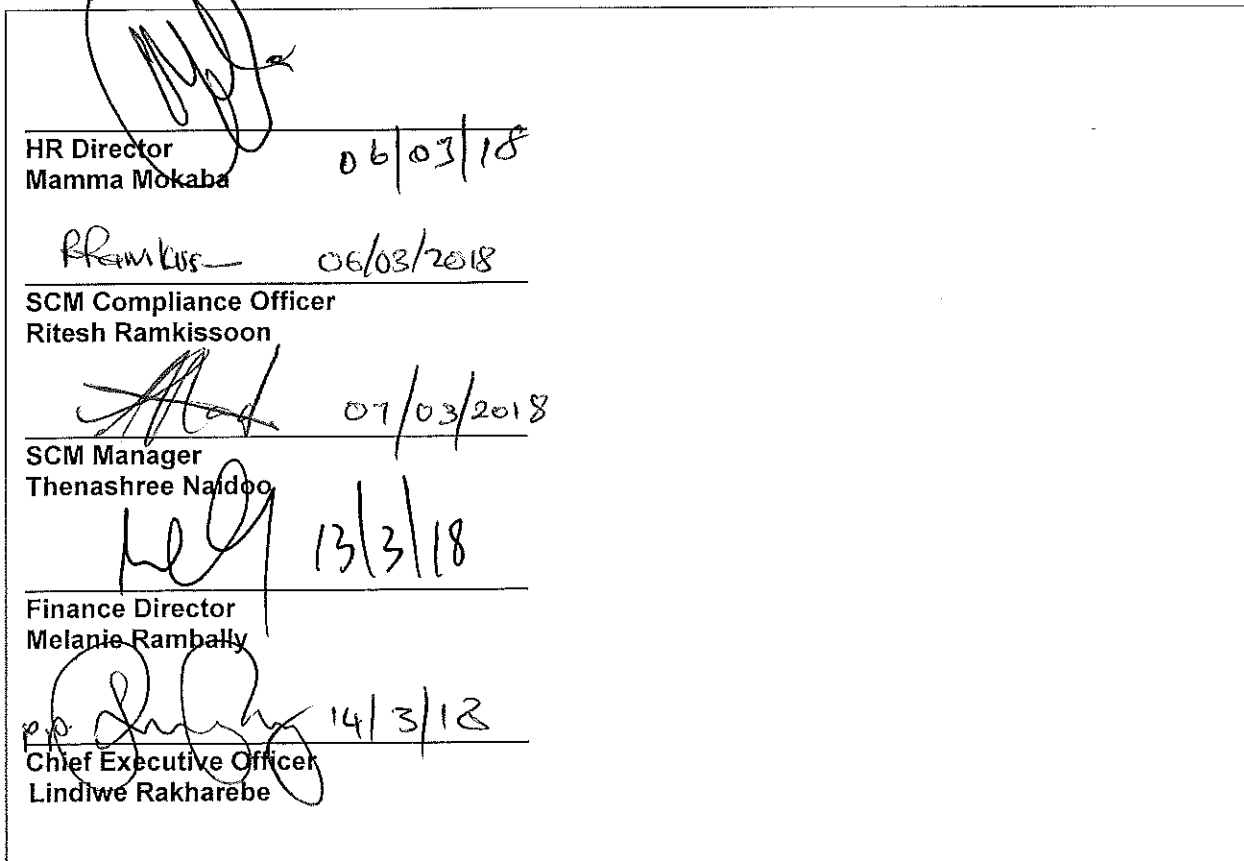 06/03/18
HR Director
Mamma Mokaba
06/03/2018
SCM Compliance Officer
Ritesh Ramkissoon
07/03/2018
SCM Manager
Thenashree Naidoo
13/3/18
Finance Director
Melanie Rambally
p.p. 14/3/18
Chief Executive Officer
Lindiwe Rakharebe